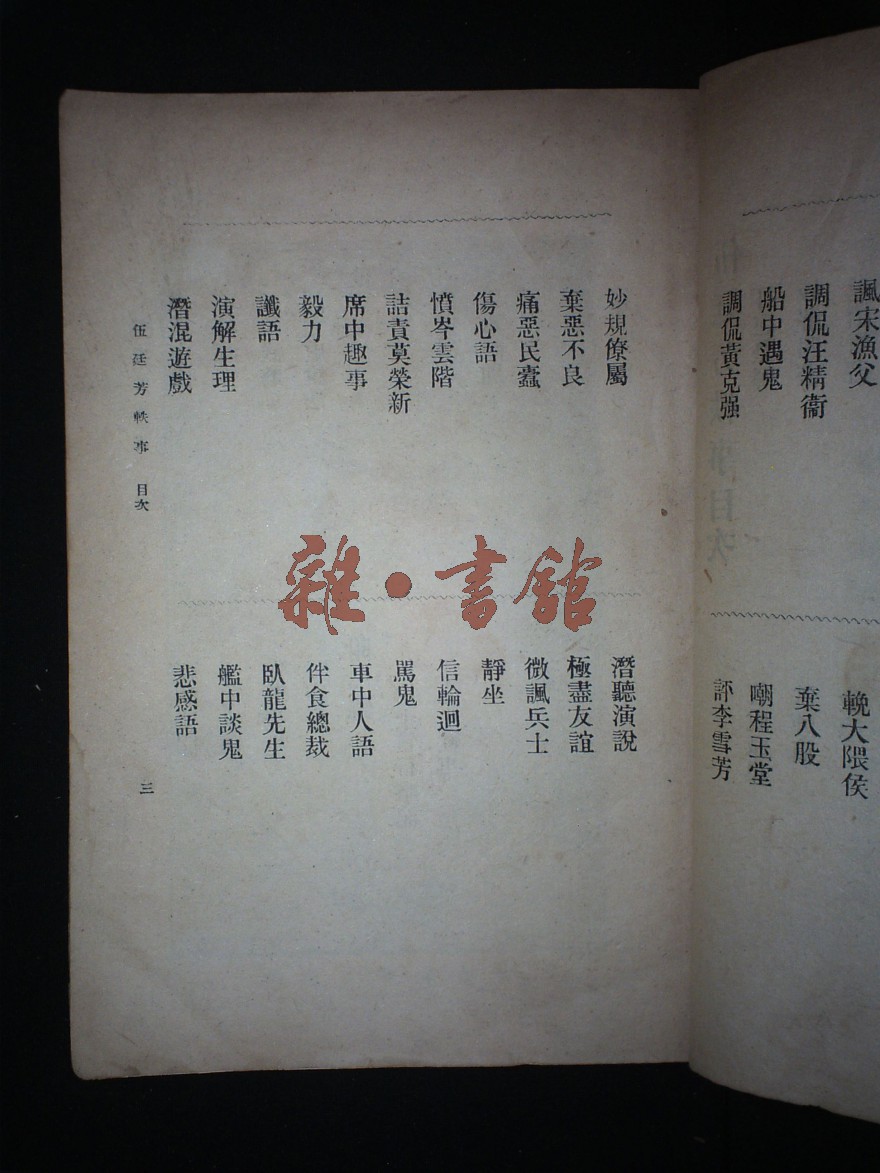 諷宋漁父
調侃汪精衞
船中遇鬼
調侃黃克强
輓大隈侯
棄八股
嘲程玉堂
評李雪芳
妙規僚屬
棄惡不良
痛惡民蠹
傷心語
憤岑雲階
詰責莫榮新
席中趣事
毅力
讖語
演解生理
潛混遊戲
潛聽演說
極盡友誼
微諷兵士
靜坐
信輪迴
罵鬼
車中人語
伴食總裁
臥龍先生
艦中談鬼
悲感語
伍廷芳軼事 目次
三
雜·書館